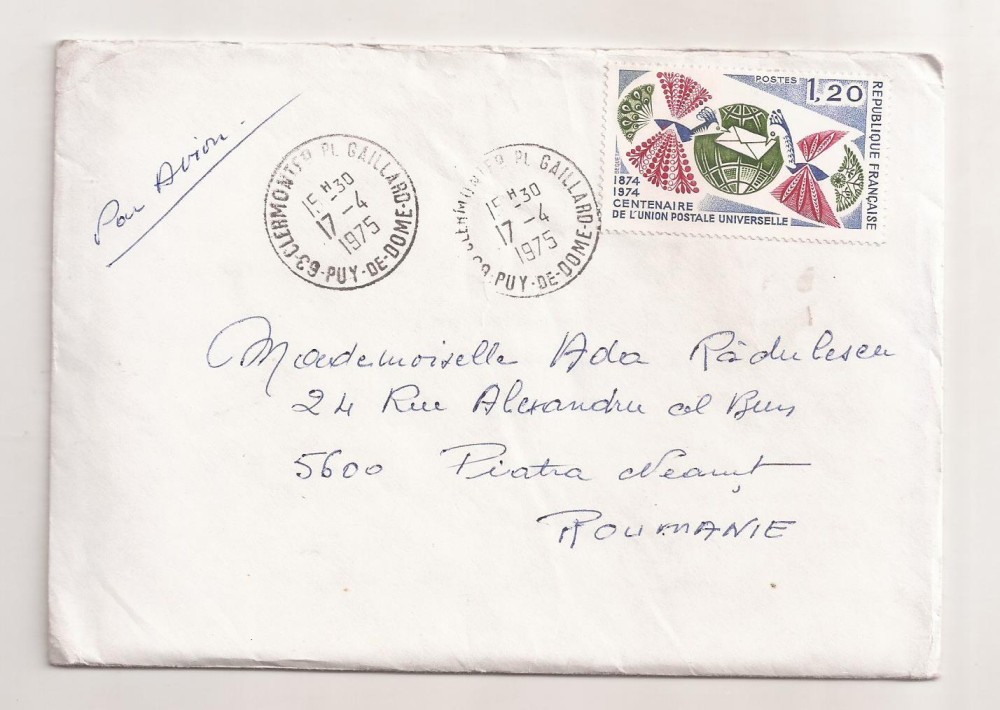 Par Avion
63-CLERMONT FD PL GAILLARD-PUY-DE-DOME
15H30
17-4
1975
63-CLERMONT FD PL GAILLARD-PUY-DE-DOME
15H30
17-4
1975
POSTES 1,20
REPUBLIQUE FRANÇAISE
1874
1974
CENTENAIRE
DE L'UNION POSTALE UNIVERSELLE
Mademoiselle Ada Rădulescu
24 Rue Alexandru cel Bun
5600 Piatra Neamț
ROUMANIE